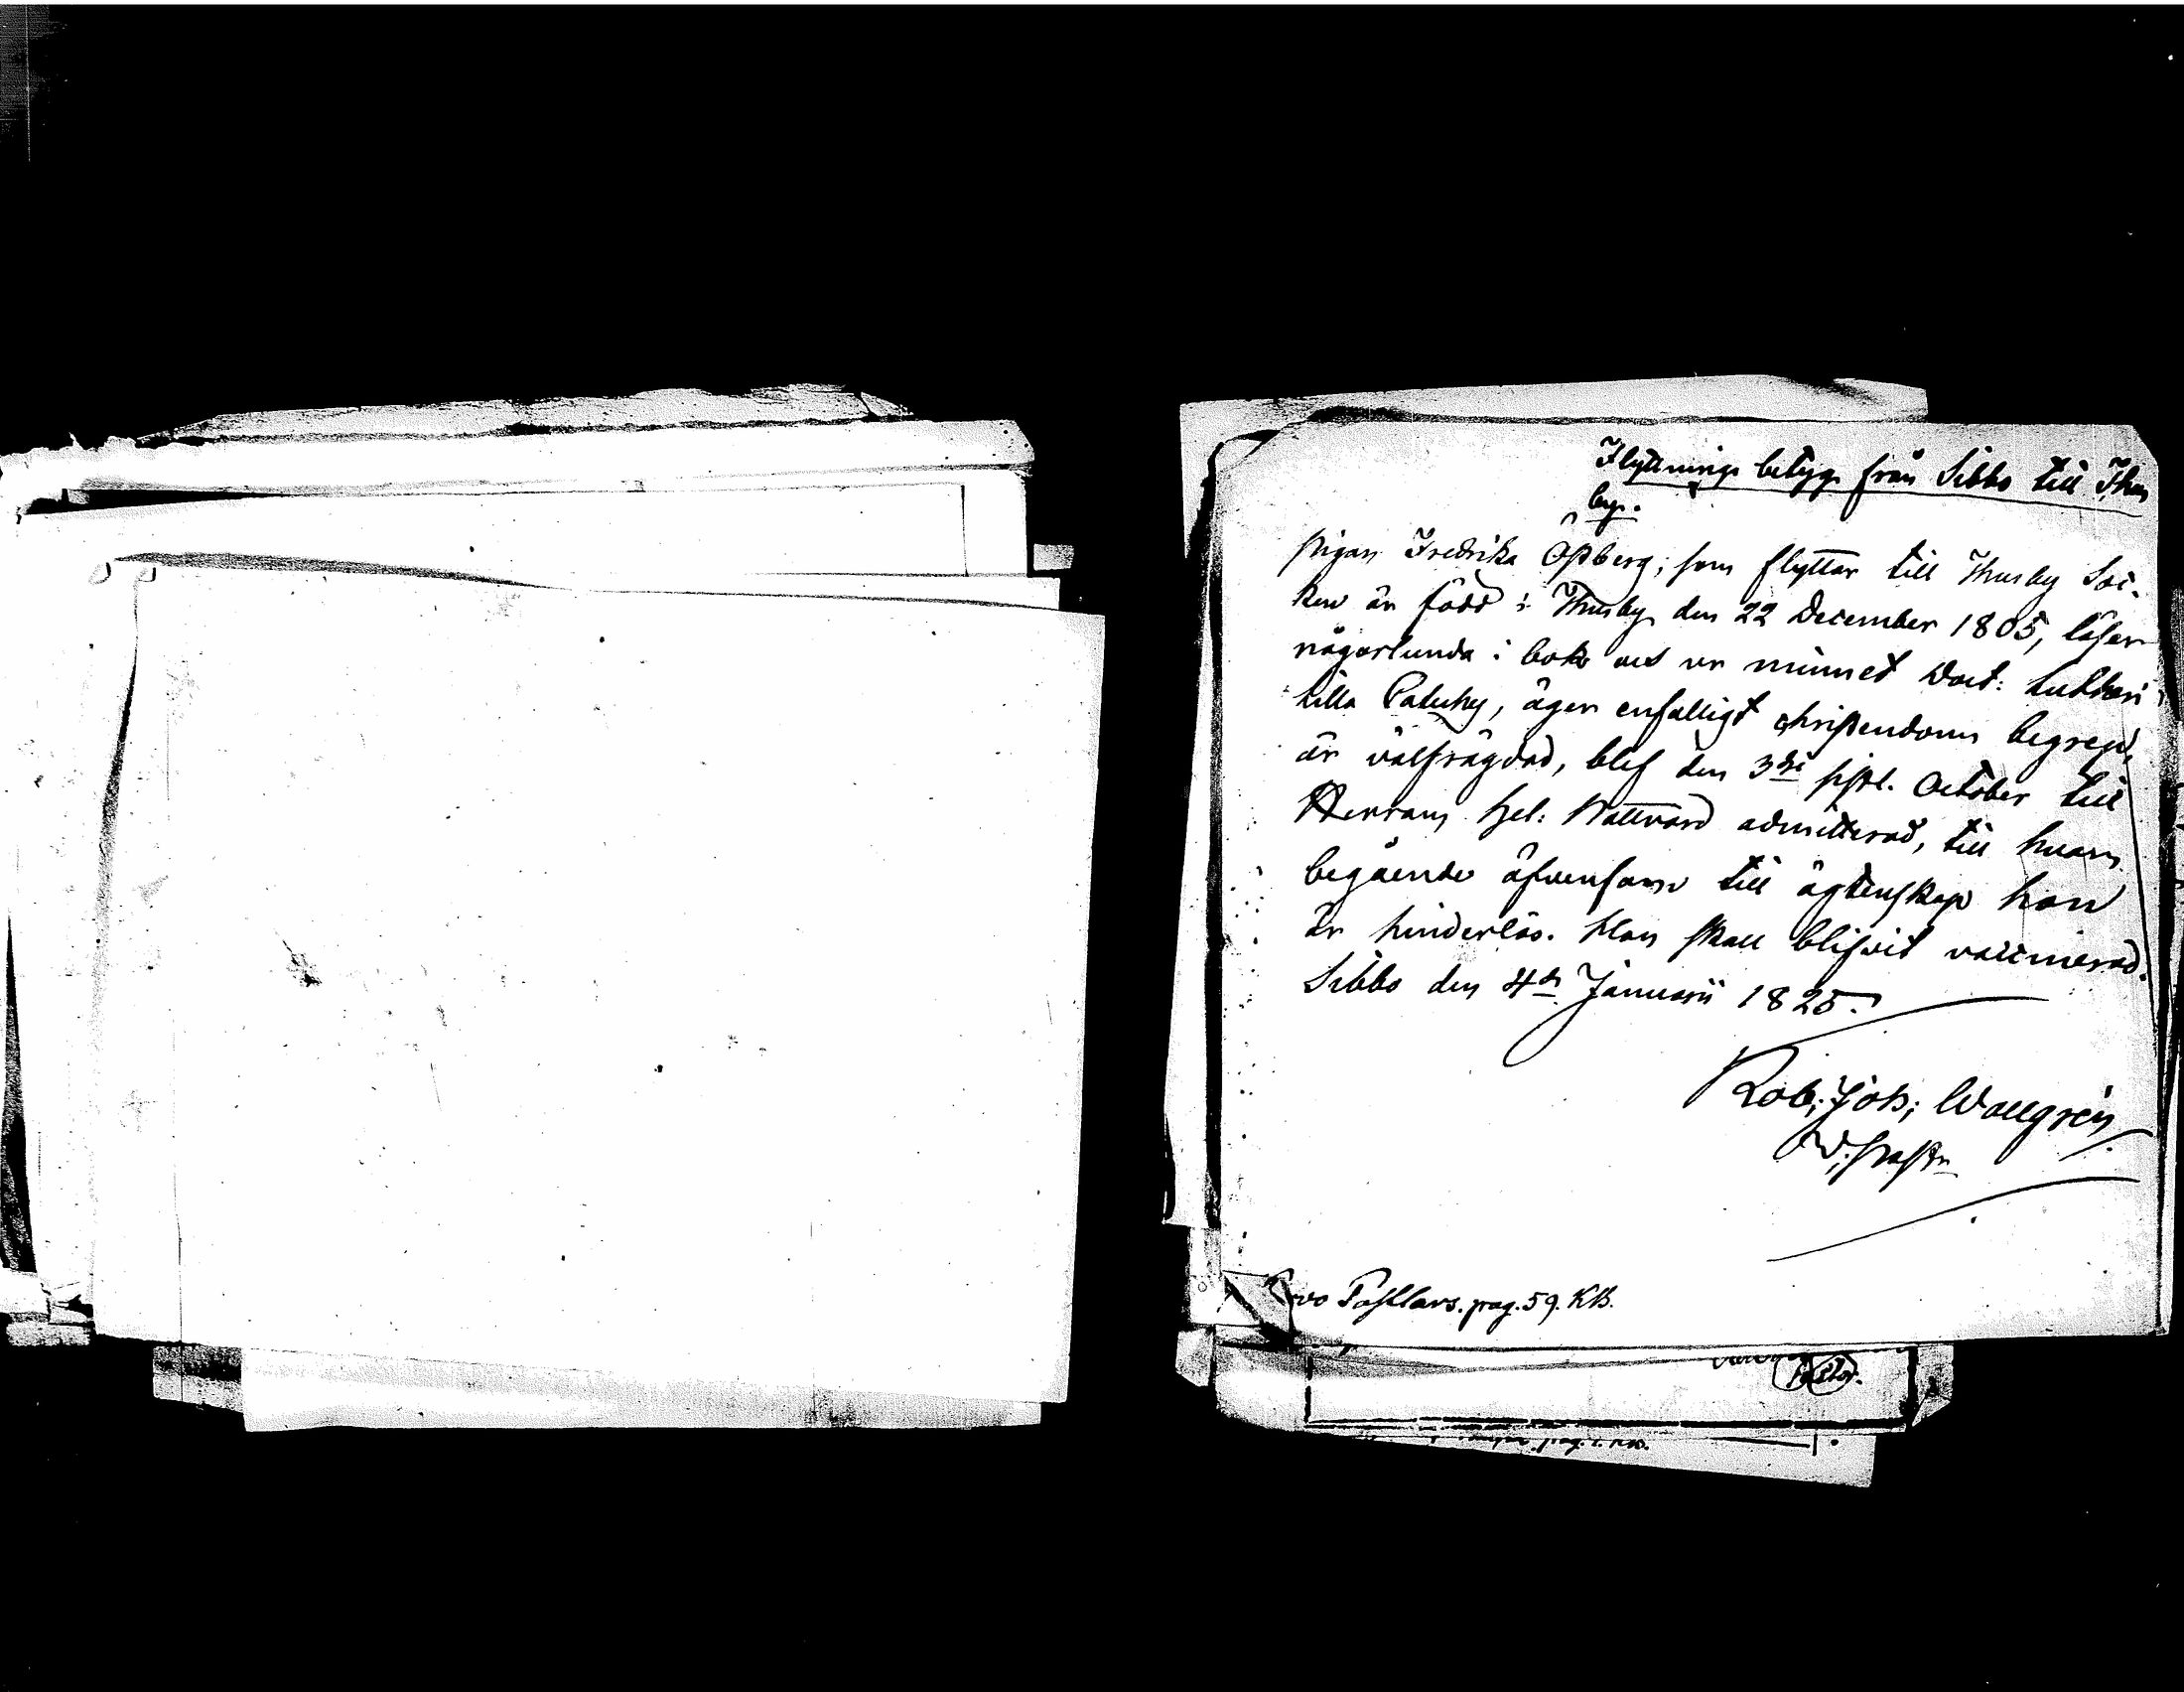 Flyttnings betyg från Sibbo till Thus
by.
Pigan Fredrika Öfberg; som flyttar till Thusby Soc-
ken är född i Thusby den 22 December 1805, läser
någorlunda i bok och ur minnet Doct: Lutheri
lilla Catechs, äger enfalligt christendoms begrep,
är välfrägdad, blef den 3die sistl. October till
Herrans Hel: Nattvard admitterad, till hvars
begående äfvensom till ägtenskap hon
är hinderlös. Hon skall blifvit vaccinerad.
Sibbo den 4de Januarii 1825.
Rob; Joh; Wallgrén
V; Pastr
pag. 59. KB.
Pastor.
pag. KB.